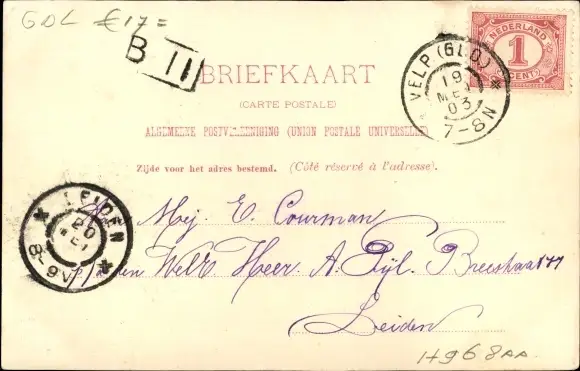 GDL €17=
B II
NEDERLAND
1
CENT
VELP (GLD)
19
MEI
03
7-8N
BRIEFKAART
(CARTE POSTALE)
ALGEMEENE POSTVEREENIGING (UNION POSTALE UNIVERSELLE)
Zijde voor het adres bestemd. (Côté réservé à l'adresse).
LEIDEN
20
MEI
8-9V
Mej. E. Courman
den WelE Heer A. Pijl. Breestraat
Leiden
H968AA